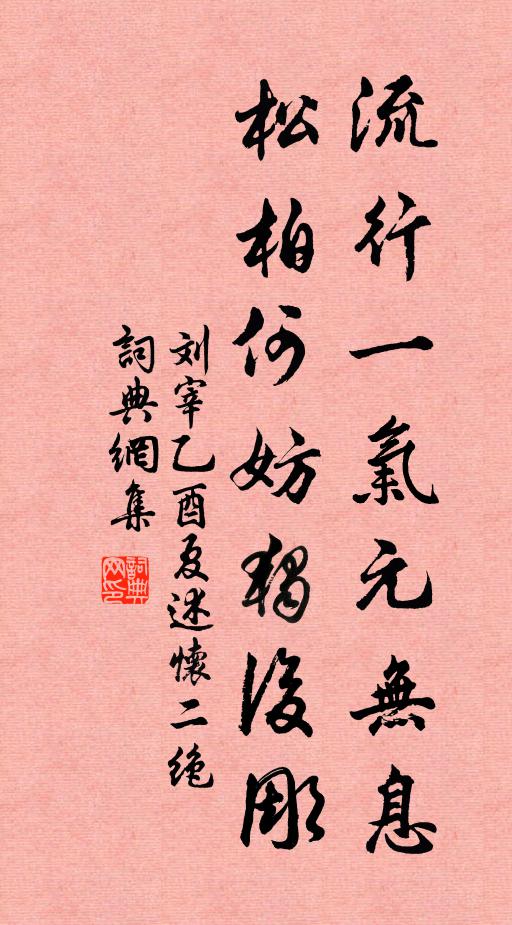 流行一氣元無息
松柏何妨獨後彫
刘宰乙酉夏述懷二绝
詞典網集
詞典网印